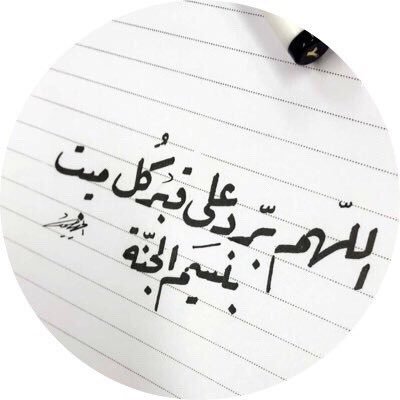 اللّهم بّرد على قبر كُل ميت
بنسيم الجنّة